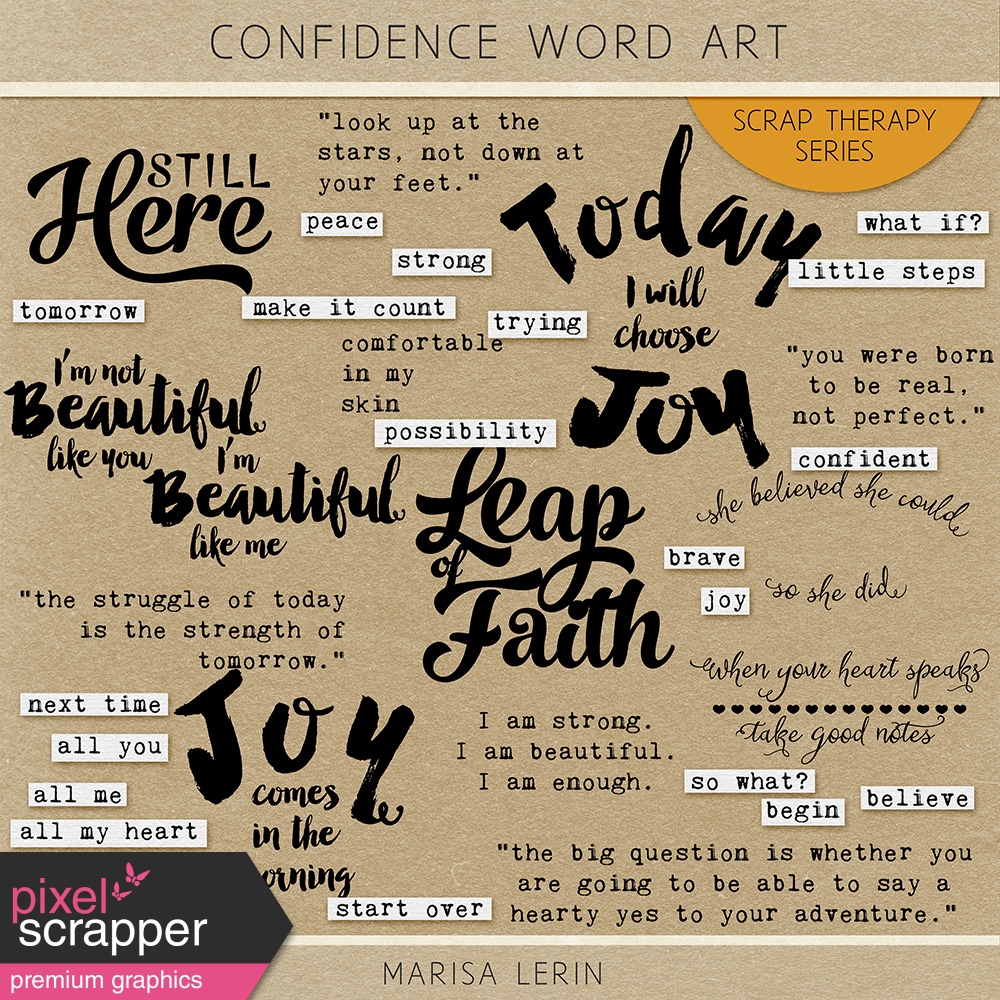 CONFIDENCE WORD ART
SCRAP THERAPY
SERIES
STILL
Here
"look up at the
stars, not down at
your feet."
peace
strong
Today
I will
choose
Joy
what if?
little steps
tomorrow
make it count
trying
comfortable
in my
skin
possibility
"you were born
to be real,
not perfect."
confident
I'm not
Beautiful
like you I'm
Beautiful
like me
Leap
of
Faith
she believed she could
brave
joy
so she did
"the struggle of today
is the strength of
tomorrow."
when your heart speaks
take good notes
next time
all you
all me
all my heart
Joy
comes
in the
orning
start over
I am strong.
I am beautiful.
I am enough.
so what?
begin
believe
"the big question is whether you
are going to be able to say a
hearty yes to your adventure."
pixel
scrapper
premium graphics
MARISA LERIN